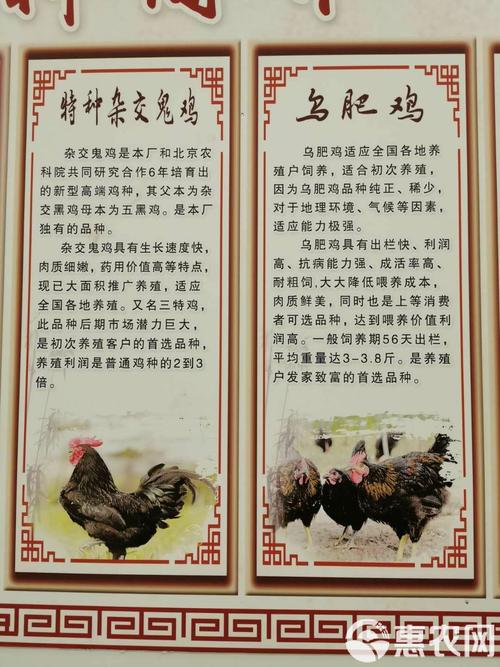 特种杂交鬼鸡
杂交鬼鸡是本厂和北京农
科院共同研究合作6年培育出
的新型高端鸡种，其父本为杂
交黑鸡母本为五黑鸡。是本厂
独有的品种。
杂交鬼鸡具有生长速度快，
肉质细嫩，药用价值高等特点，
现已大面积推广养殖，适应
全国各地养殖。又名三特鸡，
此品种后期市场潜力巨大，
是初次养殖客户的首选品种，
养殖利润是普通鸡种的2到3
倍。
乌肥鸡
乌肥鸡适应全国各地养
殖户饲养，适合初次养殖，
因为乌肥鸡品种纯正、稀少，
对于地理环境、气候等因素，
适应能力极强。
乌肥鸡具有出栏快、利润
高、抗病能力强、成活率高、
耐粗饲，大大降低喂养成本，
肉质鲜美，同时也是上等消费
者可选品种，达到喂养价值利
润高。一般饲养期56天出栏，
平均重量达3-3.8斤。是养殖
户发家致富的首选品种。
惠农网